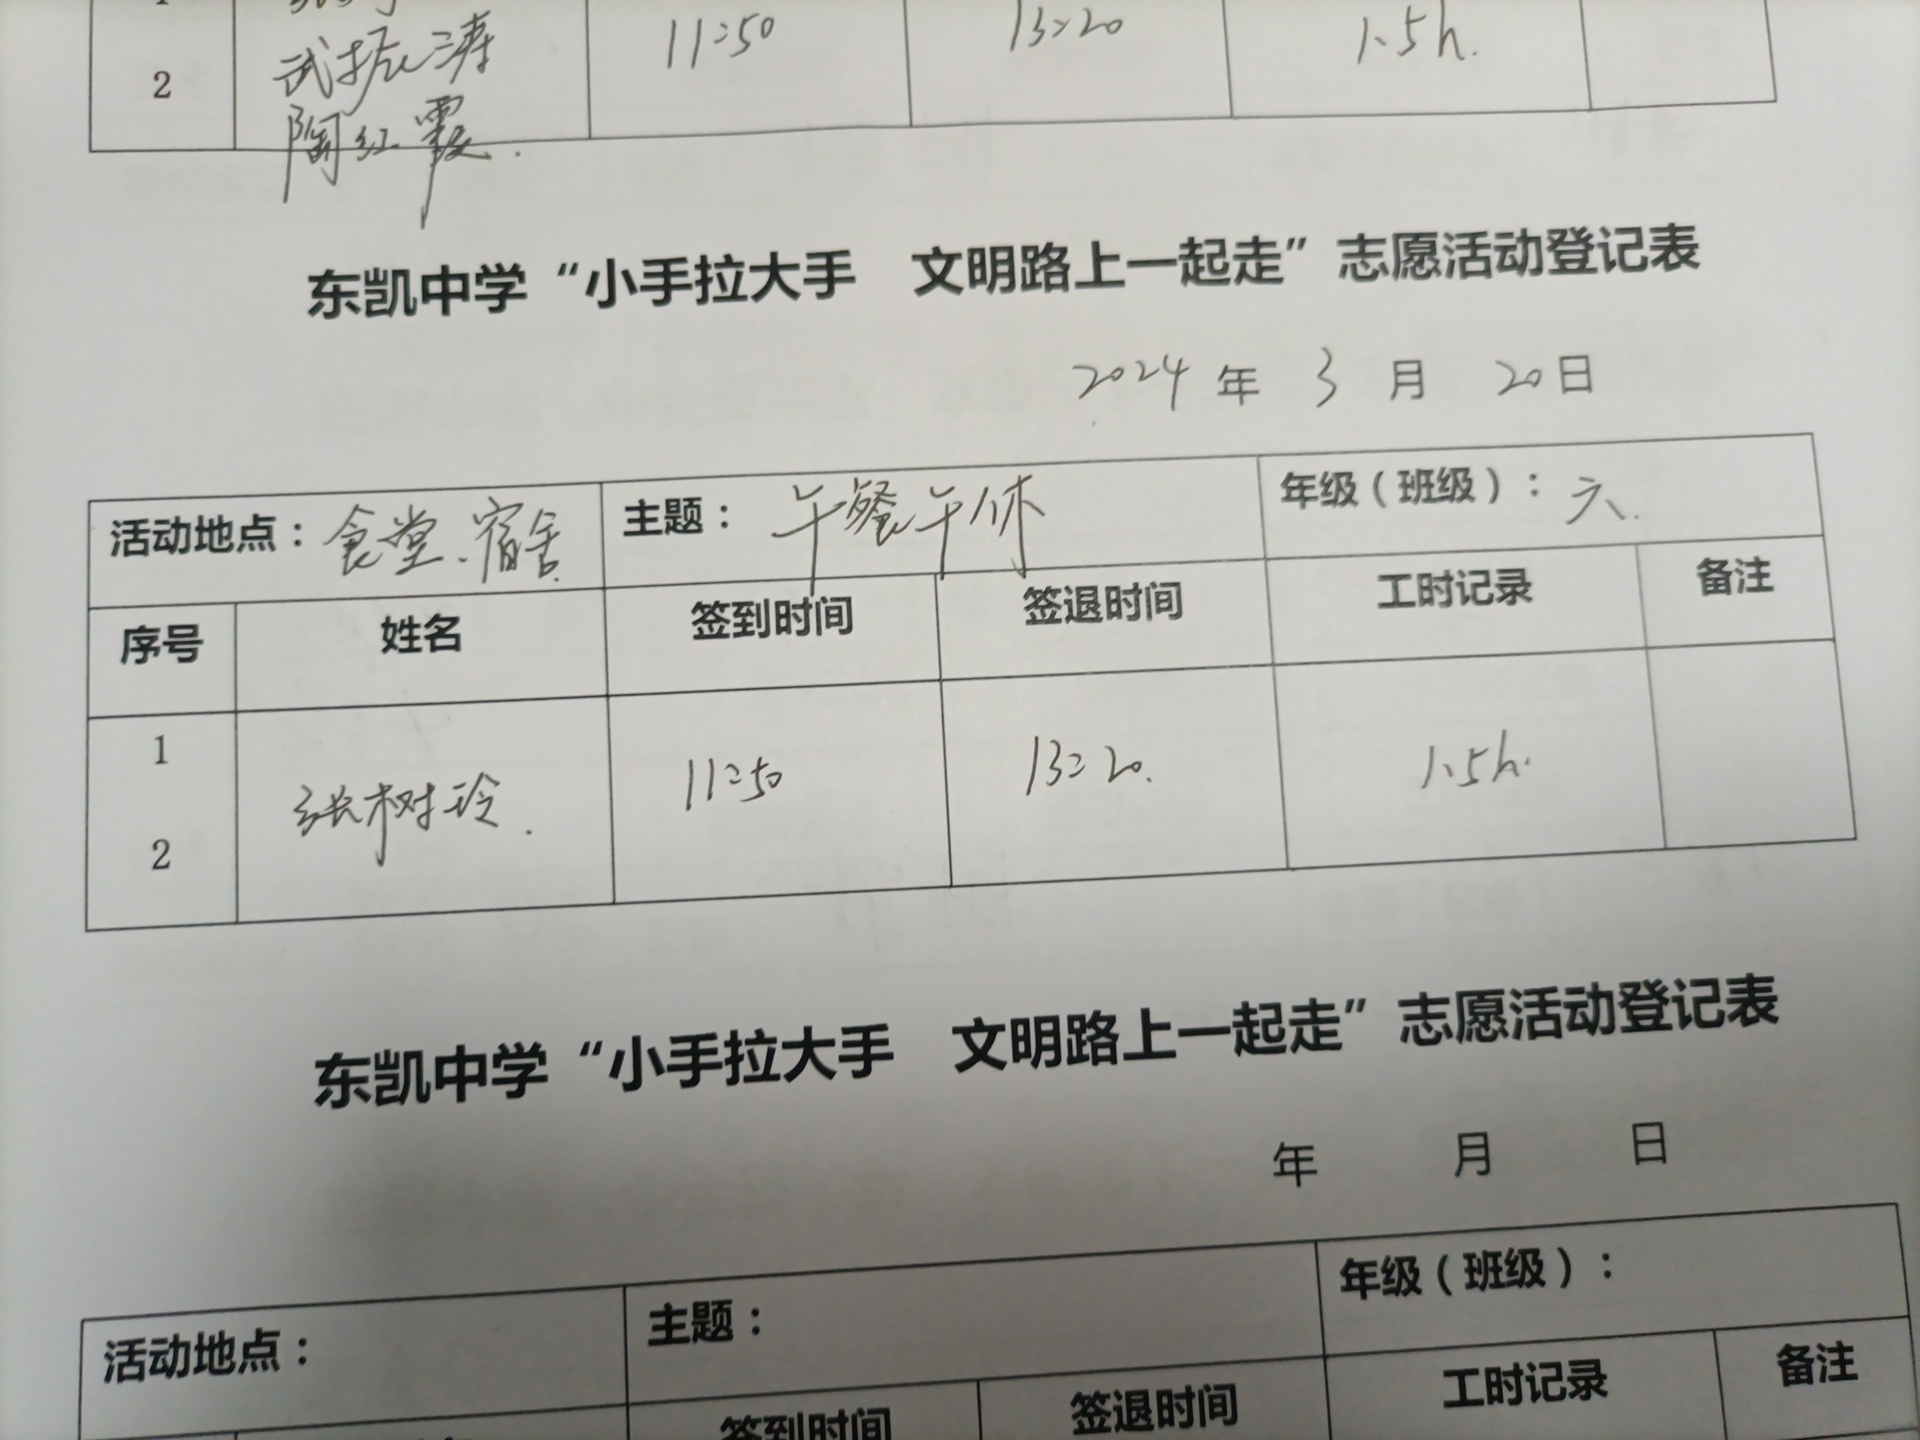 2 武振涛 11:50 13:20 1.5h.
陶红霞.
东凯中学“小手拉大手 文明路上一起走”志愿活动登记表
2024年 3月 20日
活动地点：食堂、宿舍 主题：午餐午休 年级（班级）：六.
序号 姓名 签到时间 签退时间 工时记录 备注
1
张树玲. 11:50 13:20. 1.5h.
2
东凯中学“小手拉大手 文明路上一起走”志愿活动登记表
年 月 日
活动地点： 主题： 年级（班级）：
签到时间 签退时间 工时记录 备注